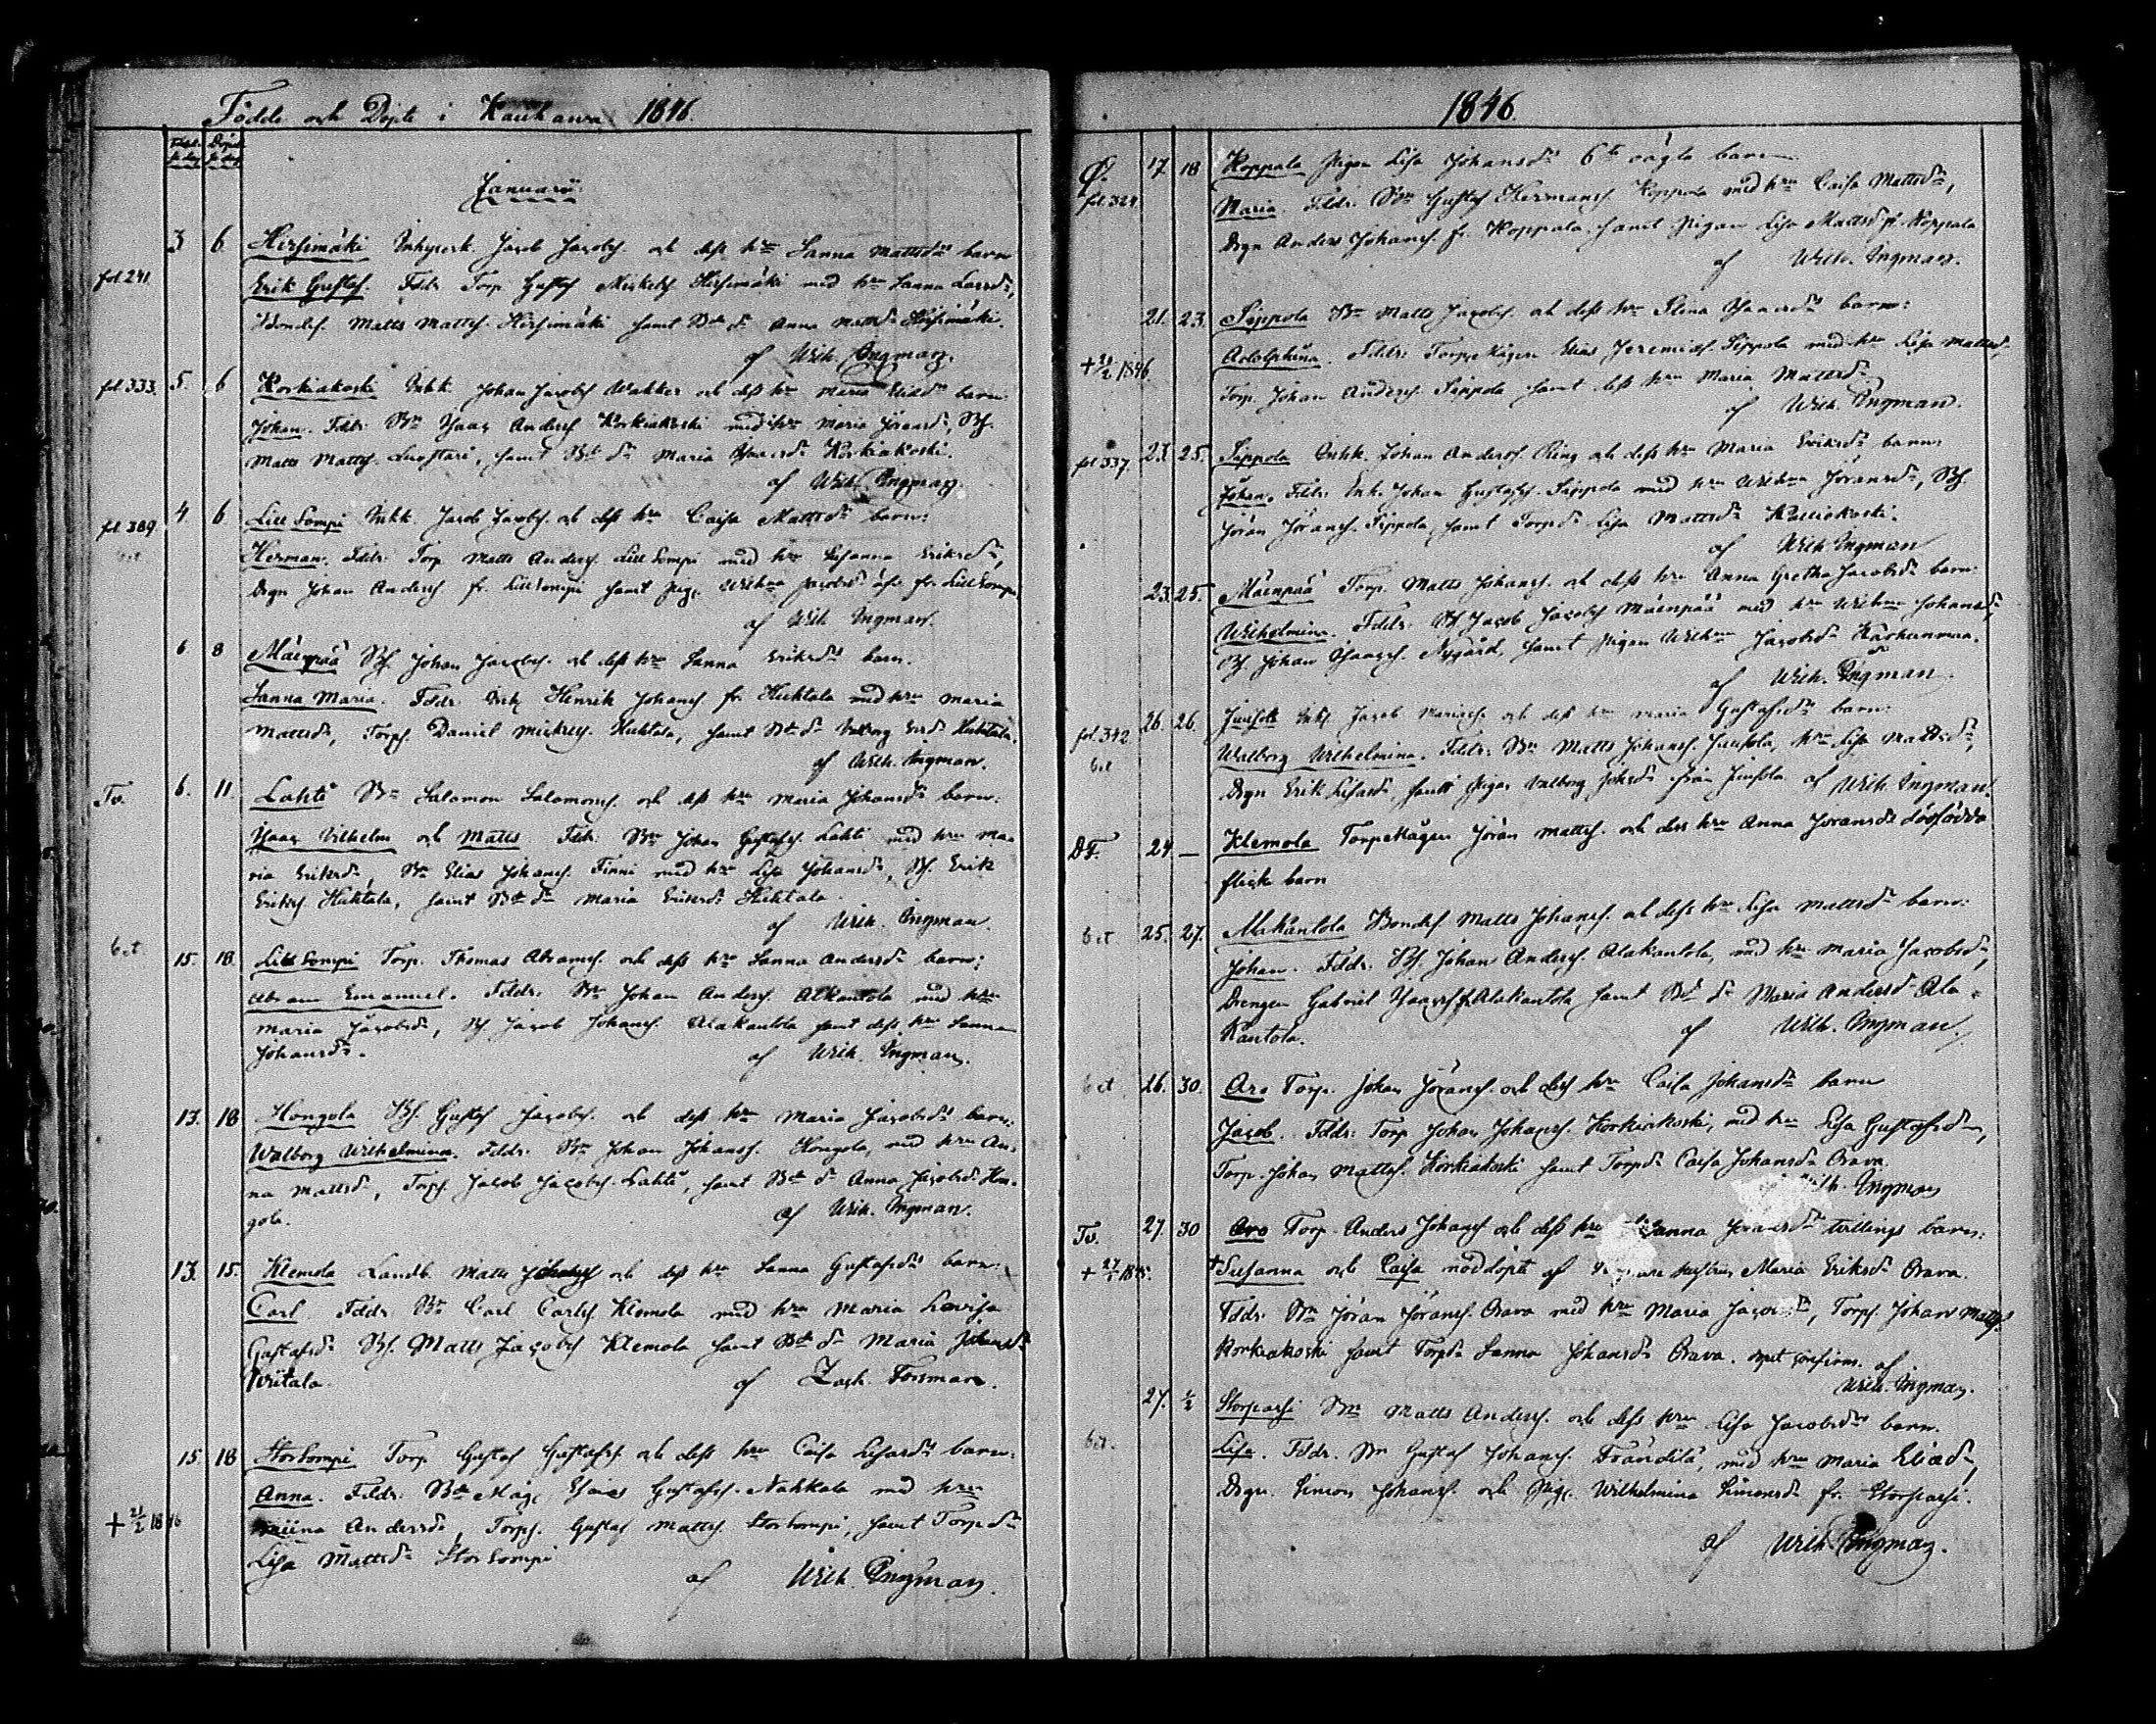 Födde och Döpte i Kauhawa 1846.
Januarii
fol 241 3 6 Hirsimäki Inhysesk. Jacob Jacobs. och dess hu Sanna Mattsdrs barn
Erik Gustaf. Fddr Torp. Gustaf Mickels. Hirsimäki med hu Sanna Larsdr,
Bondes. Matts Mattss. Hirsimäki samt Bdedr Anna Mattsdr Hirsimäki.
af Wilh. Ingman.
fol 333. 5. 6 Korkiakoski Inhk. Johan Jacobss Wakker och dess hu Maria Eliædr barn:
Johan. Fddr: Bn Isaac Anderss Korkiakoski med hu Maria Jöransdr, Bs.
Matts Mattss. Luostari, samt Bdedr Maria Isaacsdr Korkiakoski.
af Wilh. Ingman.
fol. 389. 4. 6. Lill Sompi Inhk. Jacob Jacobs. och dess hu Caisa Mattsdr barn:
Herman. Fddr: Torp. Matts Anderss. Lill Sompi med hu Susanna Eriksdr,
Drgn Johan Anderss fr. Lill Sompi samt Pig. Wilhna Jacobsdr fr. Lill Sompi
af Wilh Ingman.
6 8 Mäenpää Bs. Johan Jacobs. och dess hu Sanna Eriksdrs barn.
Sanna Maria. Fddr. Inh. Henrik Johanss fr. Huhtala med hu Maria
Mattsdr, Torps. Daniel Mickels. Huhtala, samt Bdedr Walborg Ersdr Huhtala.
af Wilh. Ingman.
Tv. 6. 11. Lahti Bn Salomon Salomons. och dess hu Maria Johansdrs barn:
Isaac Vilhelm och Matts. Fddr: Bn Johan Gustafs. Lahti med hu Ma-
ria Eriksdr, Bn Elias Johans. Finni med hu Lisa Johansdr, Bs. Erik
Eriks. Huhtala, samt Bdedr Maria Eriksdr Huhtala.
af Wilh. Ingman.
bet 15. 18. Lill Sompi Torp. Thomas Abrams. och dess hu Sanna Andersdr barn:
Abram Emanuel. Fddr: Bn Johan Anderss. Alakantola med hu
Maria Jacobsdr, Bs Jacob Johans. Alakantola samt dess hu Sanna
Johansdr. af Wilh. Ingman.
13. 18 Hongola Bs. Gustaf Jacobs. och dess hu Maria Jacobsdrs barn:
Walborg Wilhelmina. Fddr. Bn Johan Johanss. Hongola, med hu An-
na Mattsdr, Torps. Jacob Jacobs. Lahti, samt Bdedr Anna Jacobsdr Hon-
gola. af Wilh. Ingman.
13. 15. Klemola Landb. Matts Johanss och dess hu Sanna Gustafsdrs barn:
Carl. Fddr: Bn Carl Carls. Klemola med hu Maria Lovisa
Gustafsdr Bs. Matts Jacobs Klemola samt Bdedr Maria Johansdr
Wiitala. af Zach. Forsman.
15. 18 Storsompi Torp Gustaf Gustafs. och dess hu Caisa barn:
Anna. Fddr. Esaias Gustafs. Nahkala med hu
+ 21/2 1846 Miina Andersdr, Torps. Gustaf Mattss. Storsompi, samt Torpdr
Lisa Mattsdr Stor Sompi
af Wilh. Ingman.
1846.
O. fol. 324. 17. 18 Koppala Pigan Lisa Johansdrs 6te oägta barn
Maria. Fddr. Bn Gustaf Hermans. Koppala med hu Caisa Mattsdr,
Drgn Anders Johans. fr. Koppala samt Pigan Lisa Mattsdr fr. Koppala
af Wilh. Ingman.
21. 23. Seppola Bn Matts Jacobs. och dess hu Stina Isaacsdrs barn:
+ 21/2 1846. Adolphina. Fddr: Torpekägen Elias Jeremiæs. Seppola med hu Lisa Mattsdr,
Torp. Johan Anderss. Seppola samt dess hu Maria Mattsdr
af Wilh. Ingman.
fol 337. 23. 25. Seppola Inhk. Johan Anderss. Ring och dess hu Maria Eriksdrs barn:
Johan. Fddr: Enk. Johan Gustafs. Seppola med hu Wilhna Jöransdr, Bs.
Jöran Jörans. Seppola, samt Torpdr Lisa Mattsdr Kalliokoski.
af Wilh Ingman
23. 25. Mäenpää Torp. Matts Johans. och dess hu Anna Gretha Jacobsdrs barn:
Wilhelmina. Fddr: Bs Jacob Jacobs Mäenpää med hu Wilhna Johansdr,
Bs. Johan Isaacs. Nygård, samt Pigan Wilhna Jacobsdr Karhunmaa.
af Wilh. Ingman
fol. 342. bet 26. 26. Jacob och dess hu Maria Gustafsdrs barn:
Walborg Wilhelmina. Fddr: Bn Matts Johans. hu Lisa Mattsdr,
Drgn Erik samt Pigan Valborg från af Wilh. Ingman.
DF. 24. — Klemola Torpekägen Jöran Mattss. och dess hu Anna Jöransdrs dödfödda
flicke barn
bet 25. 27. Alakantola Bondes. Matts Johans. och dess hu Lisa Mattsdrs barn:
Johan. Fddr. Bs Johan Anderss. Alakantola, med hu Maria Jacobsdr,
Drengen Gabriel Isaacs fr Alakantola samt Bdedr Maria Andersdr Ala-
kantola. af Wilh. Ingman.
bet 26. 30. Aro Torp. Johan Jörans. och dess hu Caisa Johansdrs barn
Jacob. Fddr: Torp Johan Johans. Korkiakoski, med hu Lisa Gustafsdr,
Torp. Johan Mattss. Korkiakoski samt Torpdr Caisa Johansdr Orava.
Wilh. Ingman
Tv. 27. 30 Aro Torp. Anders Johanss och dess hu Sanna Jöransdrs tvillings barn:
Susanna och Caisa nöddöpte af hustrun Maria Eriksdr Orava.
Fddr. Bn Jöran Jörans. Orava med hu Maria Jacobsdr, Torps. Johan Mattss.
Korkiakoski samt Torpdr Sanna Johansdr Orava. dopet confirm. af
Wilh. Ingman.
bet. 27. 1/2 Storpassi Bn Matts Anderss. och dess hu Lisa Jacobsdrs barn.
Lisa. Fddr. Bn Gustaf Johans. Frändilä, med hu Maria Eliædr,
Drgn. Simon Johans. och Pig. Wilhelmina Simonsdr fr. Storpassi.
af Wilh. Ingman.